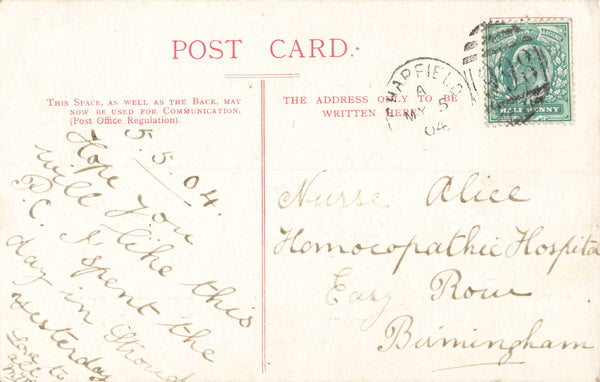 POST CARD.
THIS SPACE, AS WELL AS THE BACK, MAY
NOW BE USED FOR COMMUNICATION.
(Post Office Regulation).
THE ADDRESS ONLY TO BE
WRITTEN HERE.
HAPFIELD
A
MY 5
04
HALFPENNY
5.5.04.
Hope you
will like this
P.C. I spent the
day in Stroud
yesterday
Love to
all
Nurse Alice
Homocopathic Hospital
Easy Row
Birmingham